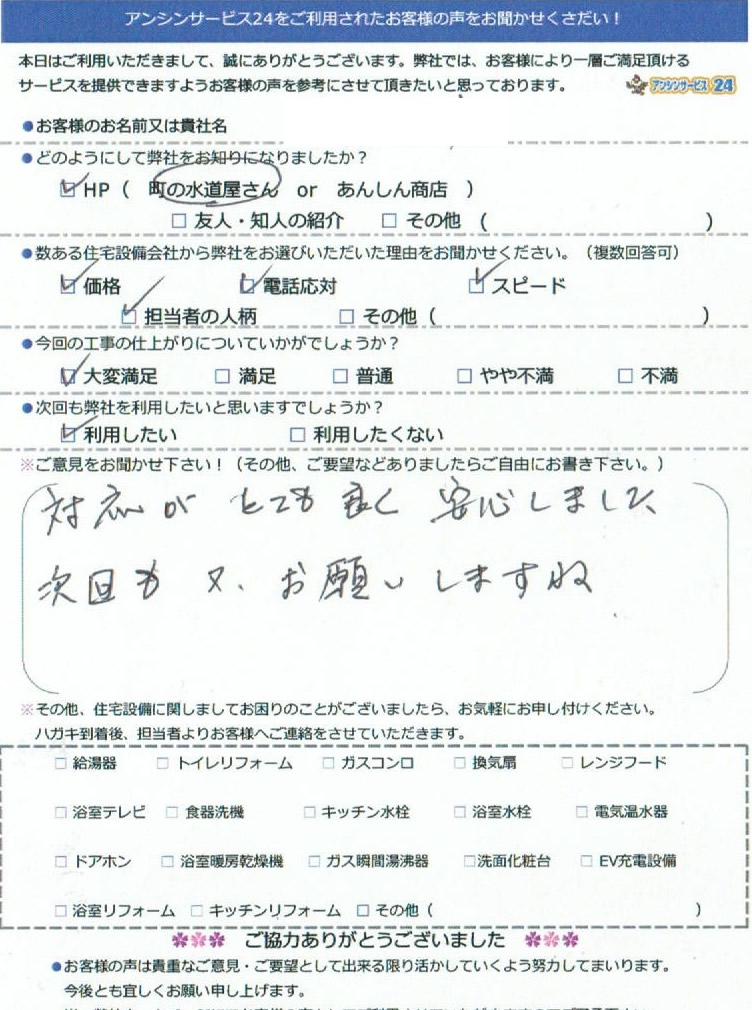 アンシンサービス24をご利用されたお客様の声をお聞かせくさだい！
本日はご利用いただきまして、誠にありがとうございます。弊社では、お客様により一層ご満足頂ける
サービスを提供できますようお客様の声を参考にさせて頂きたいと思っております。
アンシンサービス24
●お客様のお名前又は貴社名
●どのようにして弊社をお知りになりましたか？
☑HP（　町の水道屋さん　or　あんしん商店　）
□ 友人・知人の紹介　□ その他（　）
●数ある住宅設備会社から弊社をお選びいただいた理由をお聞かせください。（複数回答可）
☑ 価格　☑ 電話応対　☑ スピード
☑ 担当者の人柄　□ その他（　）
●今回の工事の仕上がりについていかがでしょうか？
☑ 大変満足　□ 満足　□ 普通　□ やや不満　□ 不満
●次回も弊社を利用したいと思いますでしょうか？
☑ 利用したい　□ 利用したくない
※ご意見をお聞かせ下さい！（その他、ご要望などありましたらご自由にお書き下さい。）
対応が とても 良く 安心しました
次回も 又、お願いしますね
※その他、住宅設備に関しましてお困りのことがございましたら、お気軽にお申し付けください。
ハガキ到着後、担当者よりお客様へご連絡をさせていただきます。
□ 給湯器　□ トイレリフォーム　□ ガスコンロ　□ 換気扇　□ レンジフード
□ 浴室テレビ　□ 食器洗機　□ キッチン水栓　□ 浴室水栓　□ 電気温水器
□ ドアホン　□ 浴室暖房乾燥機　□ ガス瞬間湯沸器　□洗面化粧台　□ EV充電設備
□ 浴室リフォーム　□ キッチンリフォーム　□ その他（　）
ご協力ありがとうございました
●お客様の声は貴重なご意見・ご要望として出来る限り活かしていくよう努力してまいります。
今後とも宜しくお願い申し上げます。